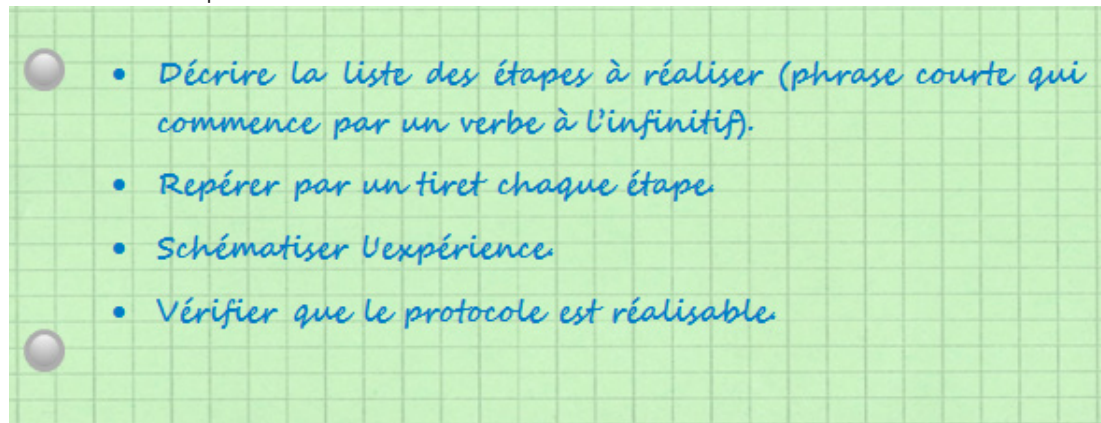 • Décrire la liste des étapes à réaliser (phrase courte qui
commence par un verbe à l'infinitif).
• Repérer par un tiret chaque étape.
• Schématiser l'expérience.
• Vérifier que le protocole est réalisable.